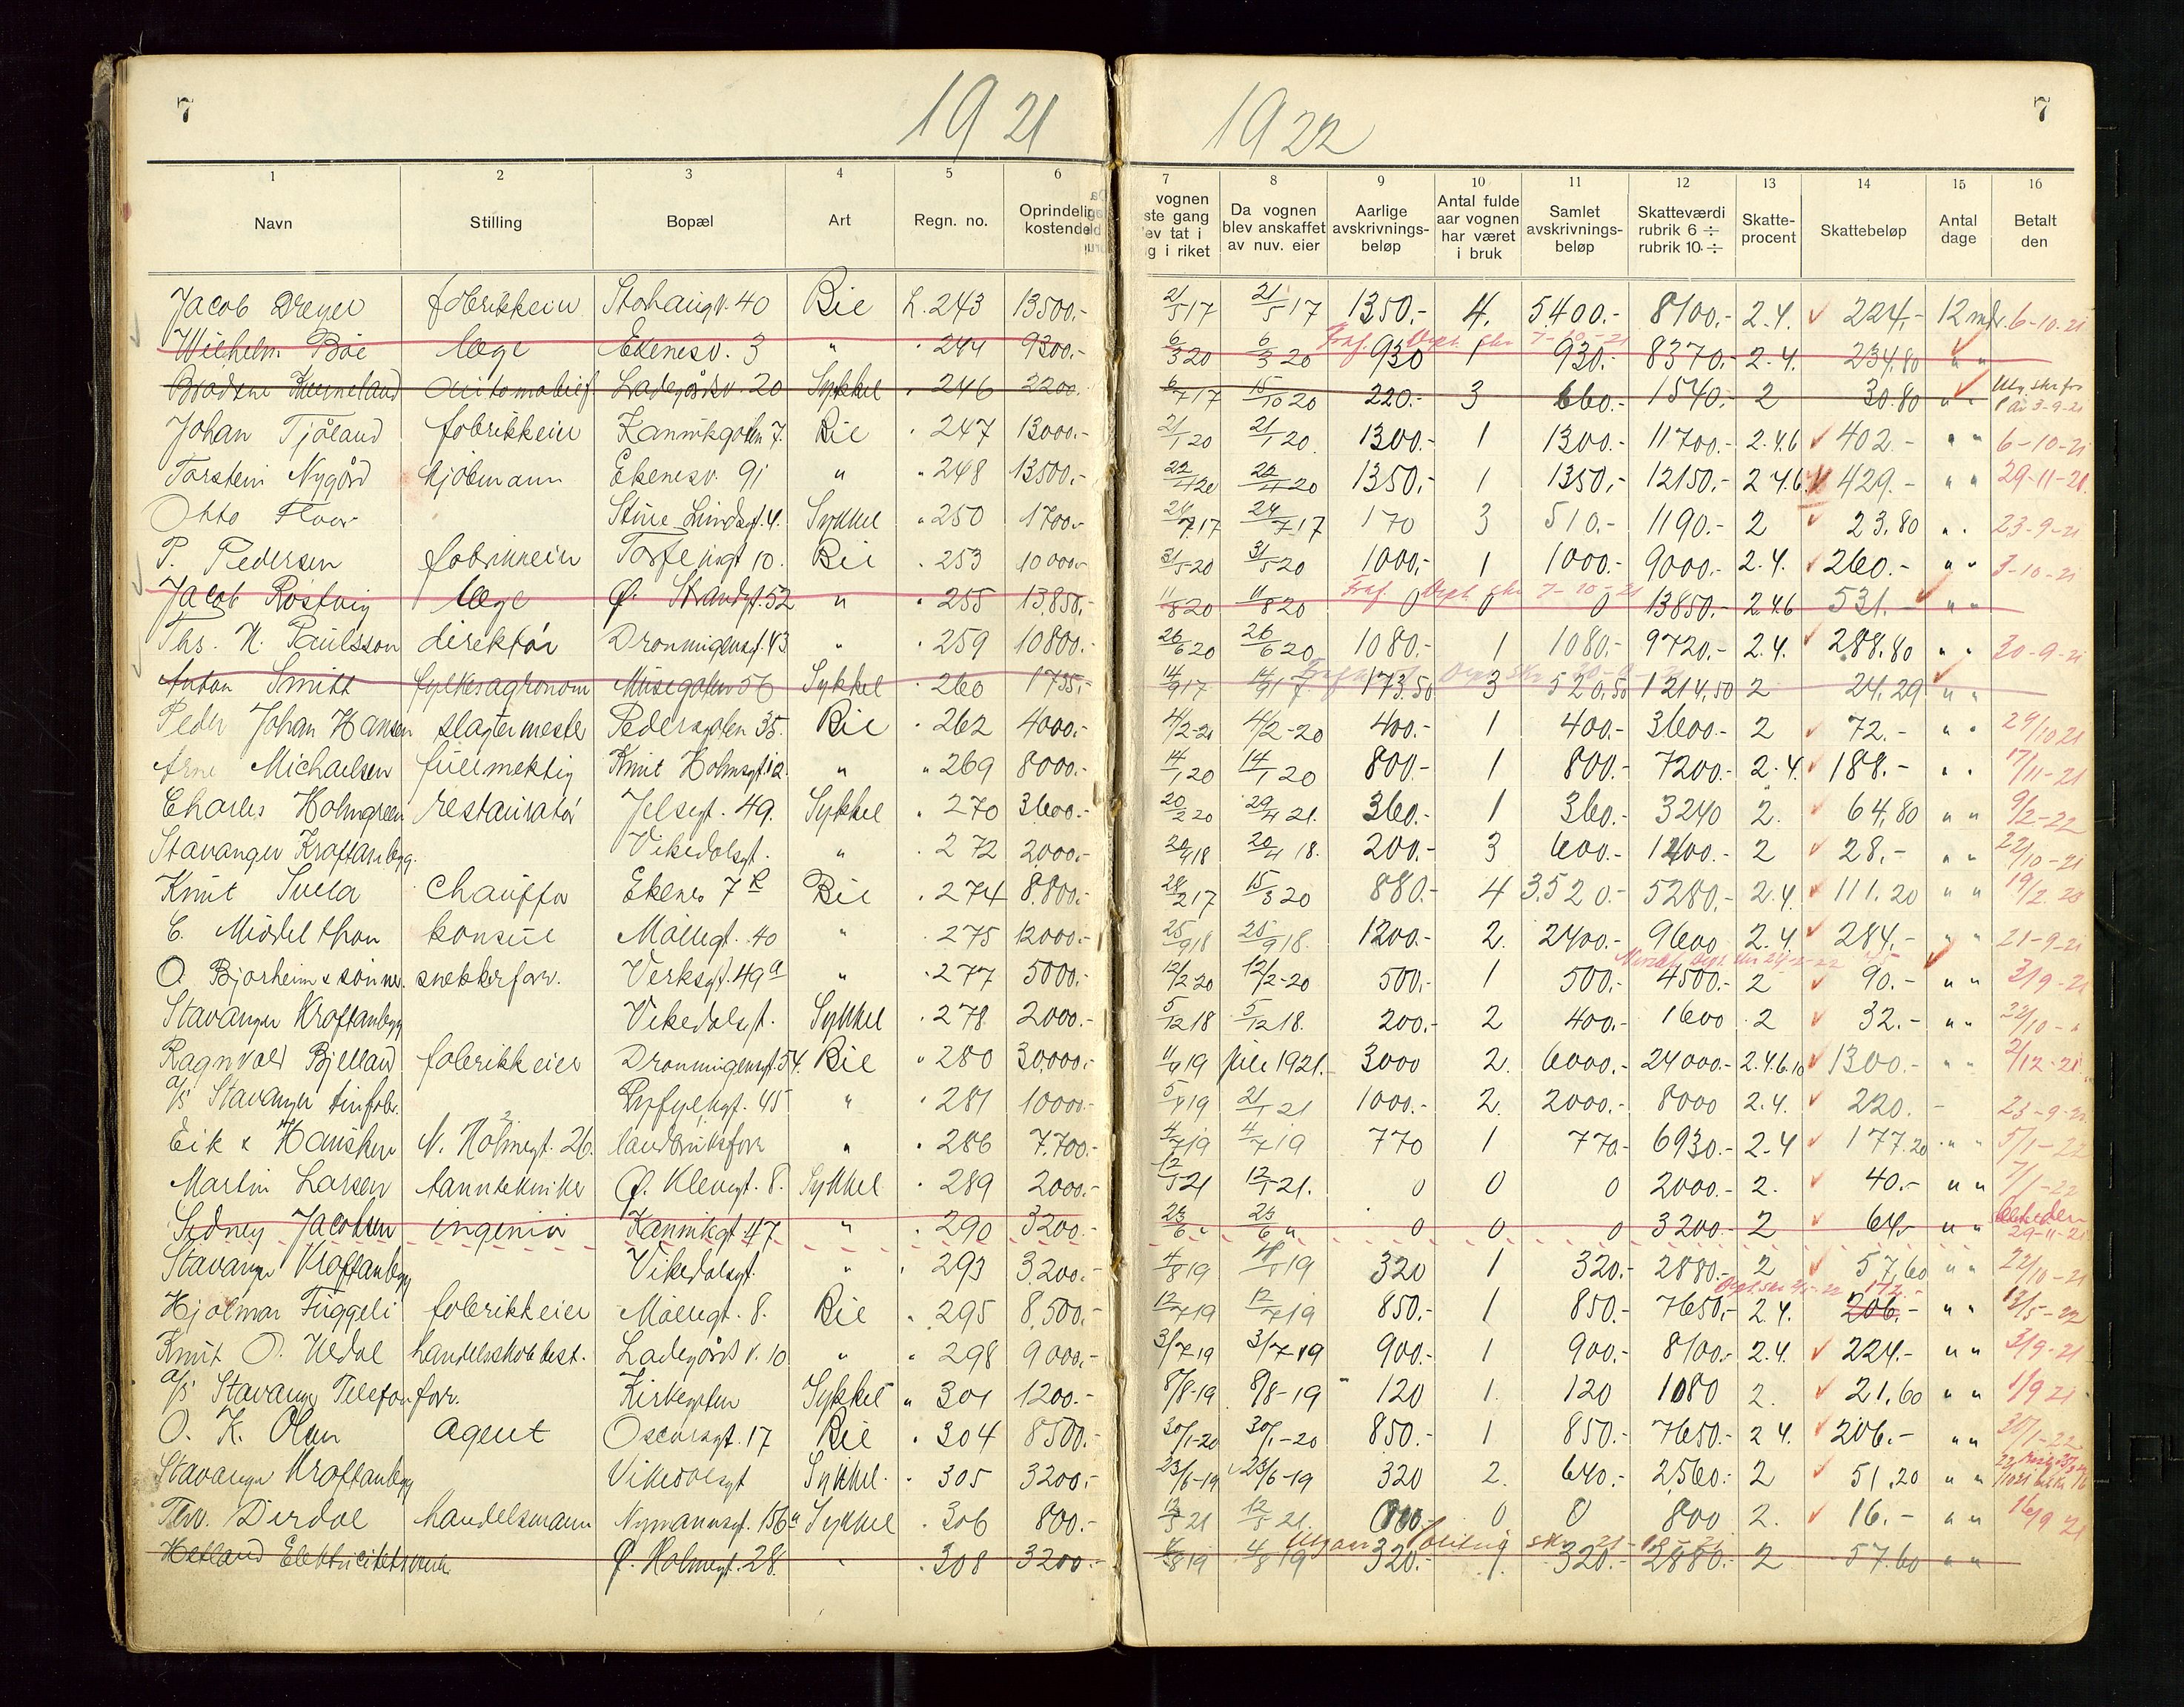 7
1921
1922
7
1 2 3 4 5 6 7 8 9 10 11 12 13 14 15 16
Navn Stilling Bopæl Art Regn. no. Oprindelig kostende vognen ste gang ev tat i g i riket Da vognen blev anskaffet av nuv. eier Aarlige avskrivnings-beløp Antal fulde aar vognen har været i bruk Samlet avskrivnings-beløp Skatteværdi rubrik 6 ÷ rubrik 10 ÷ Skatte-procent Skattebeløp Antal dage Betalt den
Jacob Dreyer fabrikkeier Stohaugv. 40 Bil L. 243 13500.- 21/5 17 21/5 17 1350.- 4. 5400.- 8100.- 2.4. 224.- 12 mdr. 6-10-21
Wilhelm Bøe læge Ekenesv. 3 " " 244 9300.- 6/3 20 6/3 20 930 1 930.- 8370.- 2.4. 234.80 " "
Brødrene Kverneland automobilf. Ladegårdsv. 20 Sykkel " 246 2200.- 6/7 17 15/10 20 220.- 3 660.- 1540.- 2 30.80 " "
Johan Tjåland fabrikkeier Kannikgaten 7. Bil " 247 13000.- 21/1 20 21/1 20 1300.- 1 1300.- 11700.- 2.4.6 402.- " " 6-10-21
Torstein Nygård kjøbmann Ekenesv. 91 " " 248 13500.- 22/4 20 22/4 20 1350.- 1 1350.- 12150.- 2 4.6. 429.- " " 29-11-21
Otto Floor Stine Lindsgt. 4. Sykkel " 250 1700.- 24/7 17 24/7 17 170 3 510.- 1190.- 2 23.80 " " 23-9-21
P. Pedersen fabrikkeier 10. Bil " 253 10000.- 31/5-20 31/5 20 1000.- 1 1000.- 9000.- 2.4. 260.- " " 3-10-21
Jacob Røstvig læge Ø. Strandgt. 52 " " 255 13,850.- 11/8 20 11/8 20 0 0 0 13850.- 2.4.6 531.- " "
Ths. H. Paulsson direktør Dronningensgt. 43 " " 259 10800.- 26/6 20 26/6 20 1080.- 1 1080.- 9720.- 2.4. 288.80 " " 30-9-21
Anton Smitt fylkesagronom Musegaten 56 Sykkel " 260 1735.- 14/9 17 14/9 17 173.50 3 520,50 1214,50 2 24.29 " "
Peder Johan Hansen slagtermester Pedersgaten 35. Bil " 262 4000.- 4/2-21 4/2-20 400.- 1 400.- 3600.- 2 72.- " " 29/10 21
Arne Michaelsen fuldmektig Knut Holmsgt. 12. " " 269 8000.- 14/1 20 14/1 20 800.- 1 800.- 7200.- 2.4. 188.- " " 17/11-21
Charles Holmgreen restauratør Jelsegt. 49. Sykkel " 270 3600.- 20/2 20 29/4 21. 360.- 1 360.- 3240 2. 64,80 " " 9/2-22
Stavanger Kraftanlegg. Vikedalsgt. " " 272 2000.- 20/4 18 20/4 18. 200.- 3 600.- 1400.- 2 28.- " " 22/10-21
Knut Ekenes 7 Bil " 274 8.800.- 28/2 17 15/3 20 880.- 4 3.520.- 5280.- 2.4. 111.20 " "
C. Middelthon konsul Møllegt. 40 " " 275 12000.- 25/9 18 25/9 18. 1200.- 2. 2400.- 9600 2.4. 284.- " " 21-9-21
O. Bjorheim & sønner. snekkerforr. Verksgt. 49a " " 277 5000.- 12/2-20 12/2-20 500.- 1 500.- 4500.- 2 90.- " " 3/9-21
Stavanger Kraftanlegg Vikedalsgt. Sykkel " 278 2000.- 5/12 18 5/12 18. 200.- 2 400.- 1600 2 32.- " " 22/10-"
Ragnvald Bjelland fabrikkeier Dronningensgt. 54. Bil " 280 30,000.- 11/9 19 juli 1921.- 3000 2. 6000.- 24000.- 2.4.6.10 1300.- " " 2/12-21.
a/s Stavanger tinfabr. Ryfylkegt. 45 " " 281 10000.- 21/1 21 1000.- 2. 2000.- 8000 2.4. 220.- 23-9-21
Eik & Hausken N. Holmegt. 26. landbruksforr " " 286 7.700.- 4/7 19 4/7 19 770 1 770.- 6930.- 2.4 177.20 " " 5/1-22
Martin Larsen tanntekniker Ø. Klevegt. 8. Sykkel " 289 2000.- 12/5 21 12/5-21. 0 0 0 2000.- 2. 40.- " " 7/1-22
Sidney Jacobsen ingeniør Kannikgt. 47 " " 290 3200.- 23/6 " 23/6 " 0 0 0 3200.- 2 64.- " " 29-11-21
Stavanger Kraftanlegg Vikedalsgt. " " 293 3.200.- 4/8 19 320 1 320.- 2880.- 2 57,60 " " 22/10-21
Hjalmar Fuggeli fabrikkeier Møllegt. 8. Bil " 295 8,500.- 12/7 19 12/7 19 850.- 1 850.- 7650.- 2.4. 206.- 172.- " " 12/5-22
Knut O. Hedal Ladegårds v. 10 " " 298 9000.- 3/7 19 3/7-19 900.- 1 900.- 8100.- 2.4. 224.- " " 3/9-21
a/s Stavanger Telefonforr. Kirkegaten Sykkel " 301 1200.- 8/8-19 8/8-19 120 1. 120 1080 2. 21,60 " " 1/9 21
O. K. Olsen agent Oscarsgt. 17 Bil " 304 8500.- 30/1-20 30/1-20 850.- 1 850.- 7650.- 2 4. 206.- " " 30/1-22
Stavanger Kraftanlegg Vikedalsgt Sykkel. " 305 3200.- 23/6-19 23/6-19 320 2. 640.- 2560.- 2 51,20 " "
Thv. Dirdal handelsmann Nymannsgt. 156a Sykkel " 306 800.- 12/5 21 12/5 21. 0 0 800 2. 16.- " " 16/9 21
Hetland Elektricitetsverk Ø. Holmegt. 28. " " 308 3200.- 4/8 19 4/8 19 320.- 1. 320.- 2880.- 2 57.60 " "